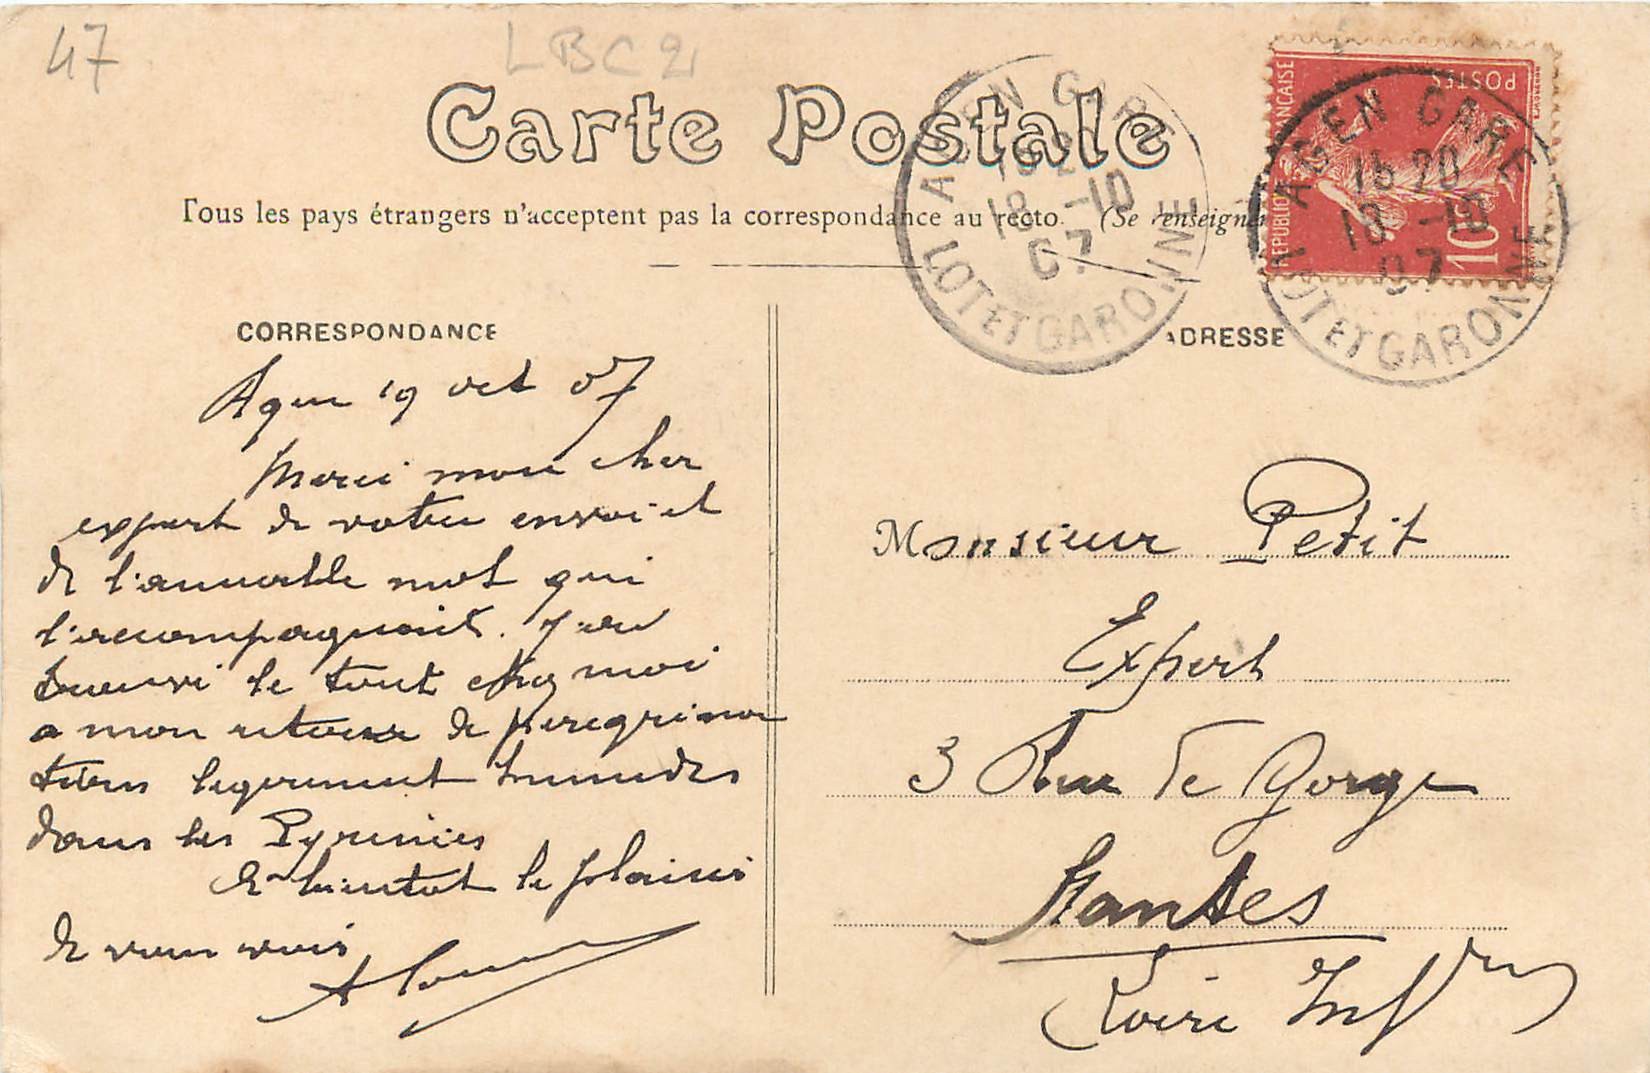 47
LBC2
Carte Postale
Tous les pays étrangers n'acceptent pas la correspondance au recto. (Se renseigner
CORRESPONDANCE
ADRESSE
AGEN GARE
18 -10
07
LOT ET GARONNE
REPUBLIQUE FRANÇAISE
POSTES
10
AGEN GARE
16 20
18 -10
07
LOT ET GARONNE
Agen 19 oct 07
Merci mon cher
expert de votre envoi et
de l'aimable mot qui
l'accompagnait. J'ai
trouvé le tout chez moi
a mon retour de peregrina
tions legerement humides
dans les Pyrénées
A bientot le plaisir
de vous voir
Monsieur Petit
Expert
3 Rue de Gorge
Nantes
Loire Infre